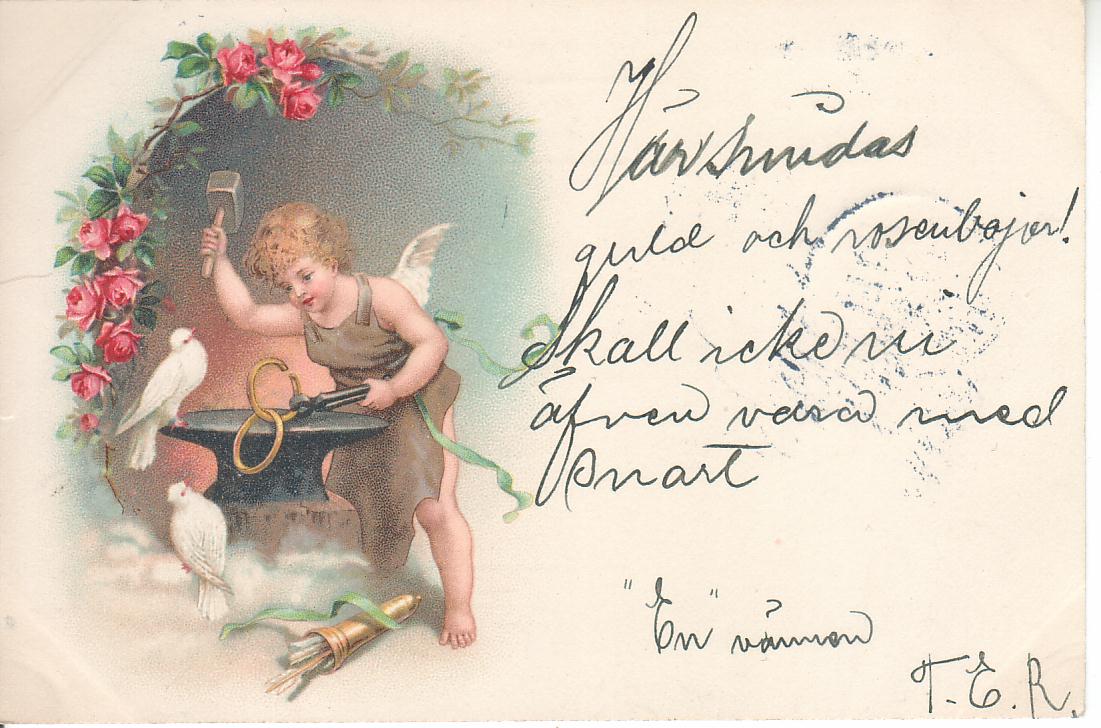 Här smidas
guld och rosenbojor!
Skall icke ni
äfven vara med
snart
"En" vännen
T. E. R.